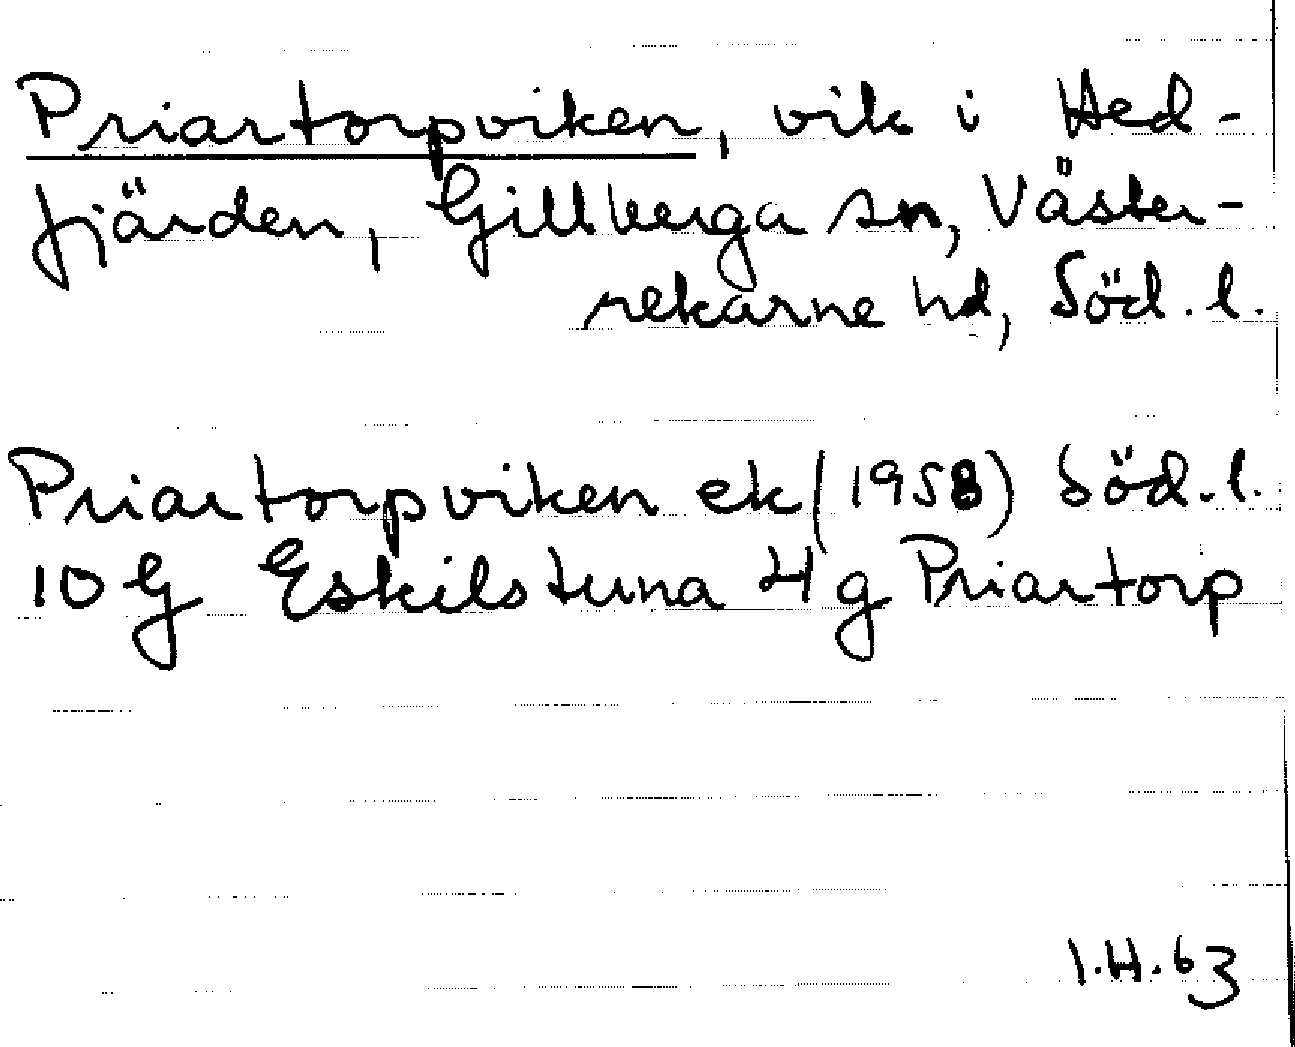 Priartorpviken, vik i Hed-
fjärden, Gillberga sn, Väster-
rekarne hd, Söd. l.
Priartorpviken ek (1958) Söd. l.
10 G Eskilstuna 4 g Priartorp
I.H. 63